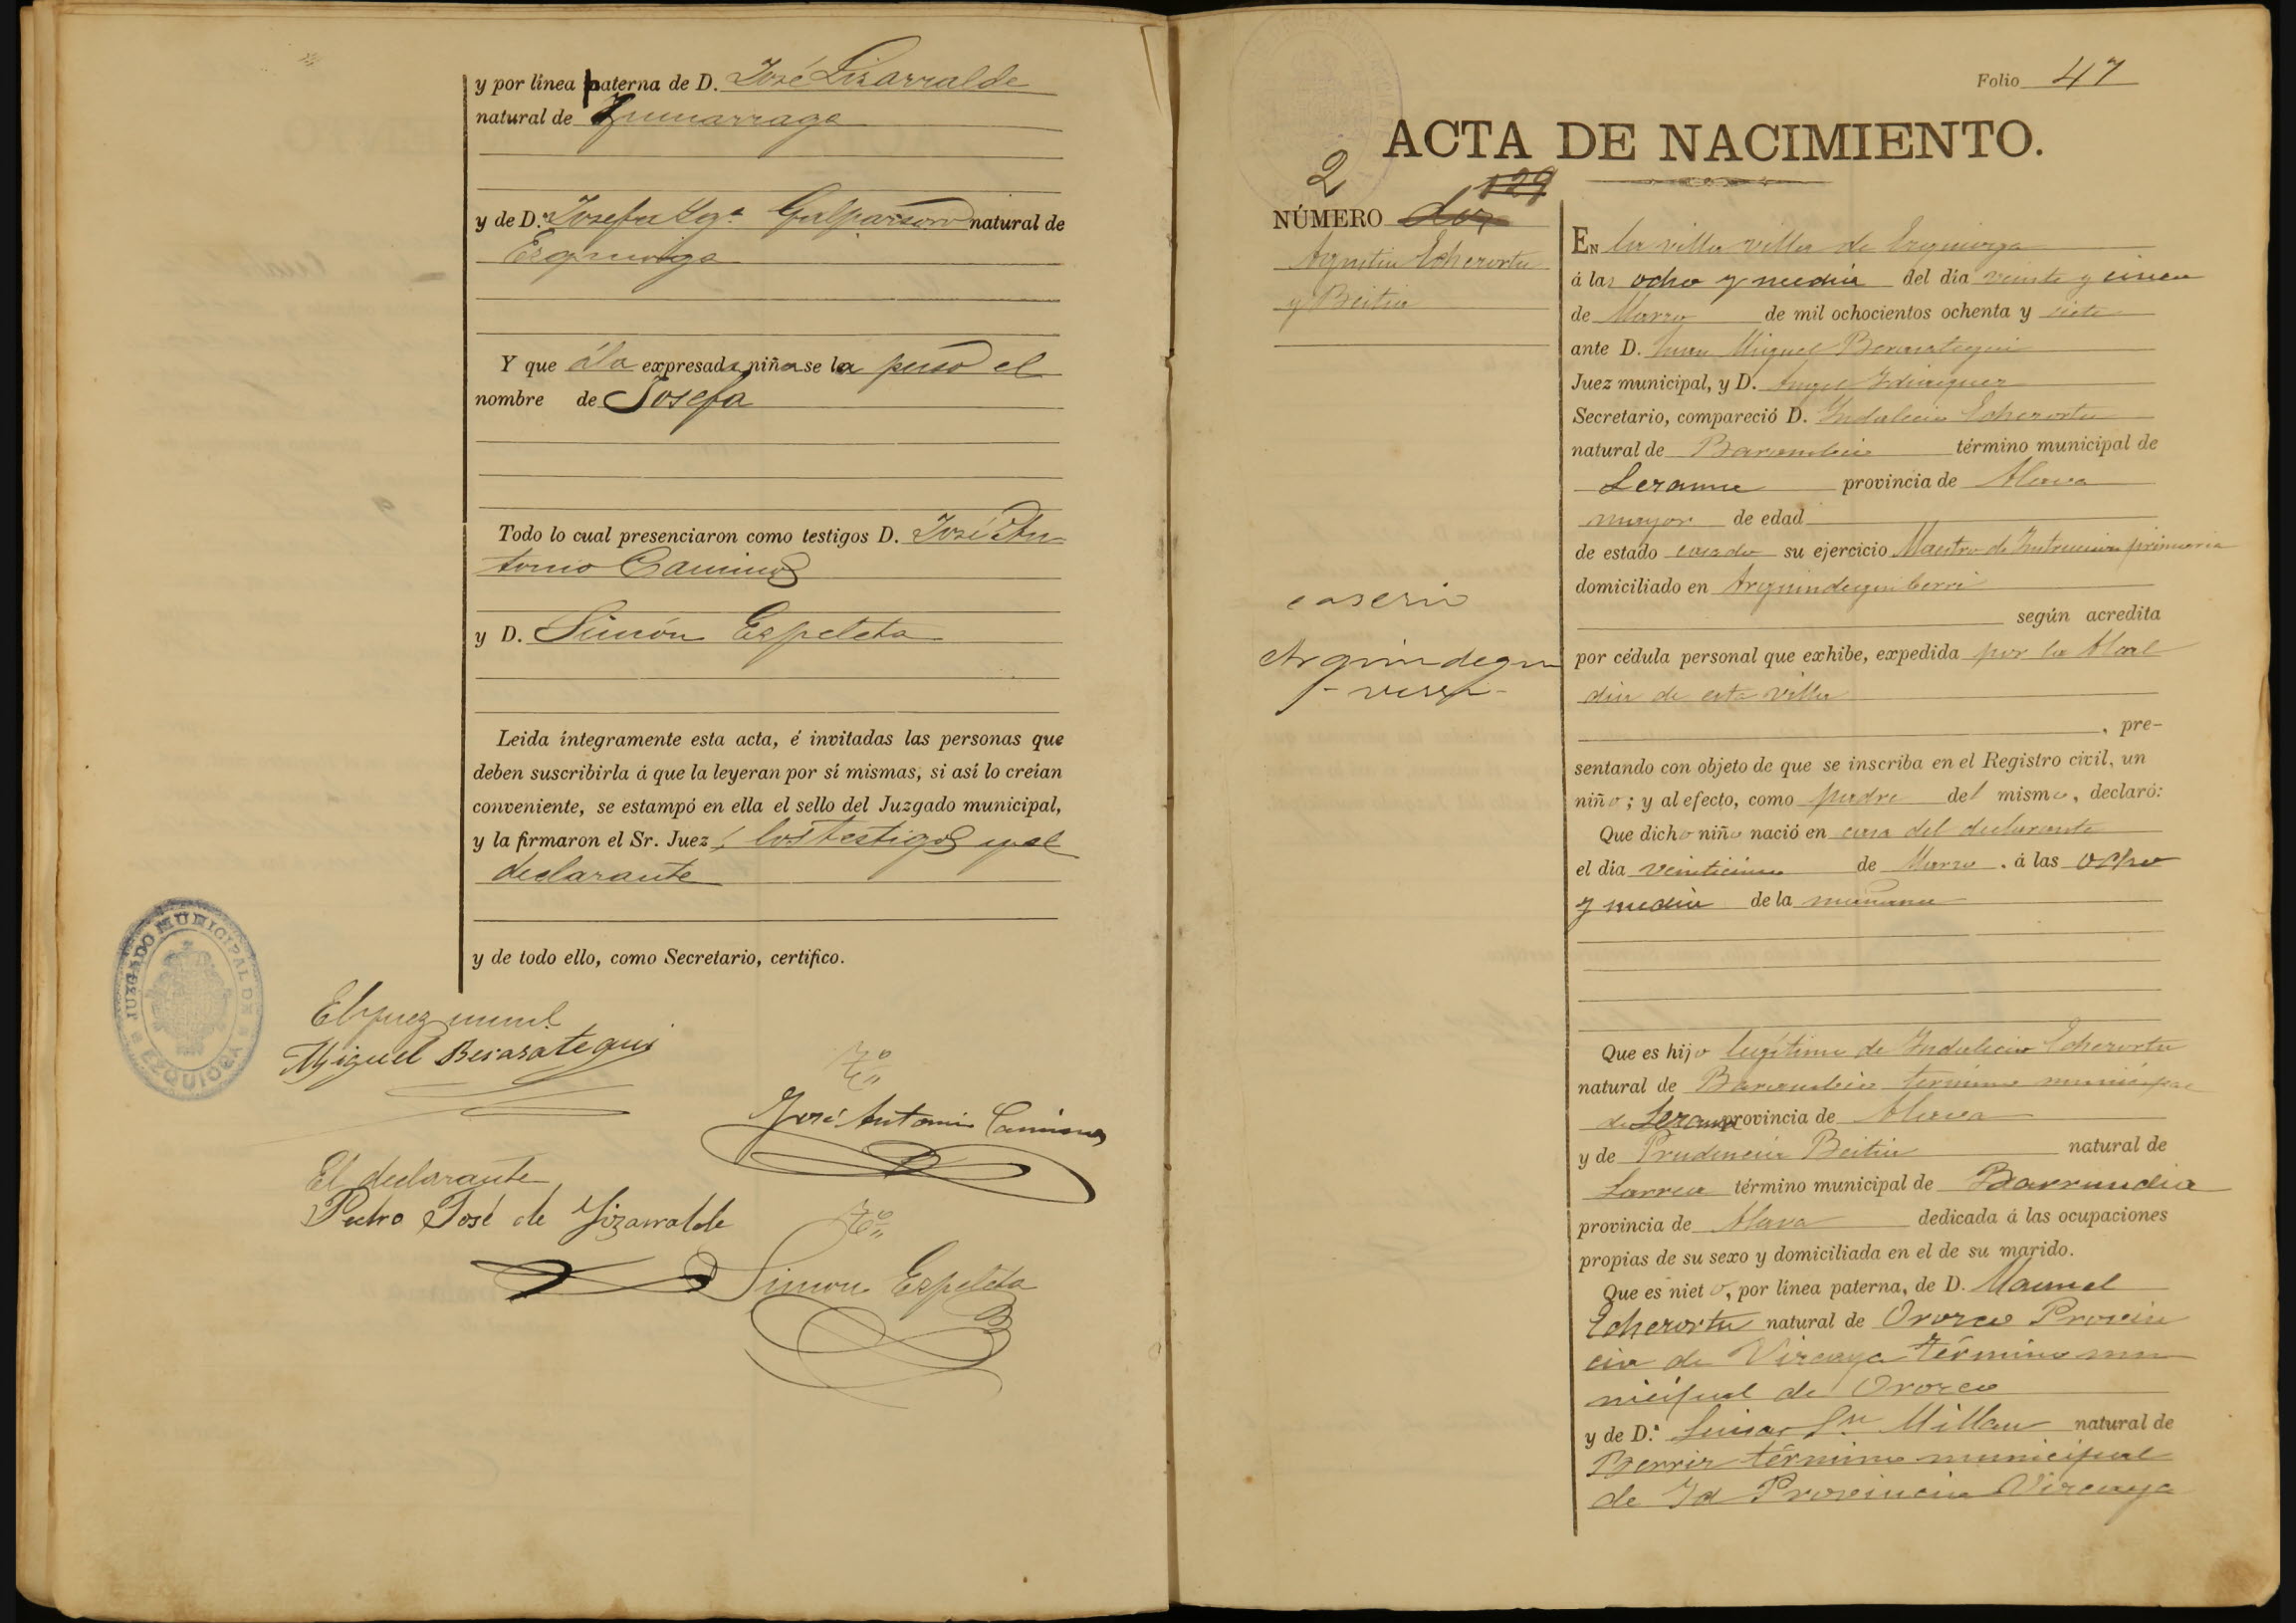 y por línea paterna de D. José Lizarralde
natural de Zumarraga
y de D.ª Josefa Ygª Galparsoro natural de
Ezquioga
Y que á la expresada niña se la puso el
nombre de Josefa
Todo lo cual presenciaron como testigos D. José An
tonio Caminos
y D. Simón Espeleta
Leida íntegramente esta acta, é invitadas las personas que
deben suscribirla á que la leyeran por sí mismas, si así lo creían
conveniente, se estampó en ella el sello del Juzgado municipal,
y la firmaron el Sr. Juez, los testigos y el
declarante
y de todo ello, como Secretario, certifico.
JUZGADO MUNICIPAL DE EZQUIOGA
El juez munl.
Miguel Berasategui
Tº
José Antonio Caminos
El declarante
Pedro José de Lizarralde
Tº
Simon Espeleta
Folio 47
ACTA DE NACIMIENTO.
2
129
NÚMERO dos
Agustin Echezortu
y Beitia
caserio
Arguindegui
verri
EN la villa villa de Ezquioga
á las ocho y media del día veinte y cinco
de Marzo de mil ochocientos ochenta y siete
ante D. Juan Miguel Berasategui
Juez municipal, y D. Angel
Secretario, compareció D. Indalecio Echezortu
natural de Barambio término municipal de
Lezama provincia de Alava
mayor de edad
de estado casado su ejercicio Maestro de Instruccion primaria
domiciliado en Arguindegui berri
según acredita
por cédula personal que exhibe, expedida por la Alcal
dia de esta villa
, pre-
sentando con objeto de que se inscriba en el Registro civil, un
niño; y al efecto, como padre del mismo, declaró:
Que dicho niño nació en casa del declarante
el día veinticinco de Marzo á las ocho
y media de la mañana
Que es hijo legítimo de Indalecio Echezortu
natural de Barambio termino municipal
de Lezama provincia de Alava
y de Prudencia Beitia natural de
Larrea término municipal de Barrundia
provincia de Alava dedicada á las ocupaciones
propias de su sexo y domiciliada en el de su marido.
Que es nieto, por línea paterna, de D. Manuel
Echezortu natural de Orozco Provin
cia de Vizcaya término mu
nicipal de Orozco
y de D.ª Luisa Sn Millan natural de
Berriz término municipal
de Id Provincia Vizcaya